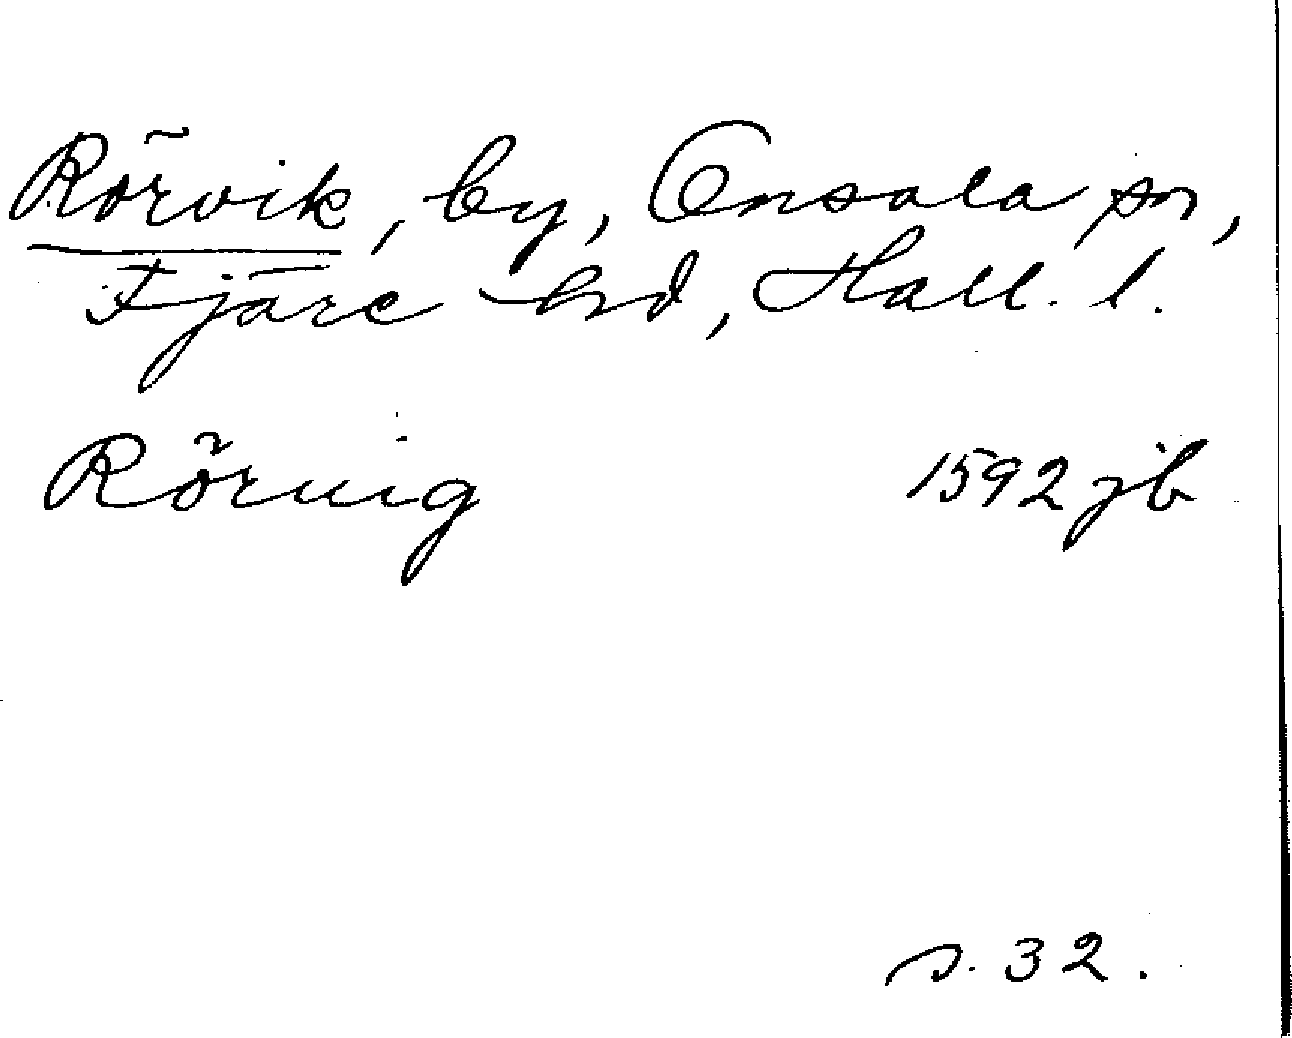 Rörvik, by, Onsala sn,
Fjäre hd, Hall. l.
Röruig 1592 jb
s. 32.